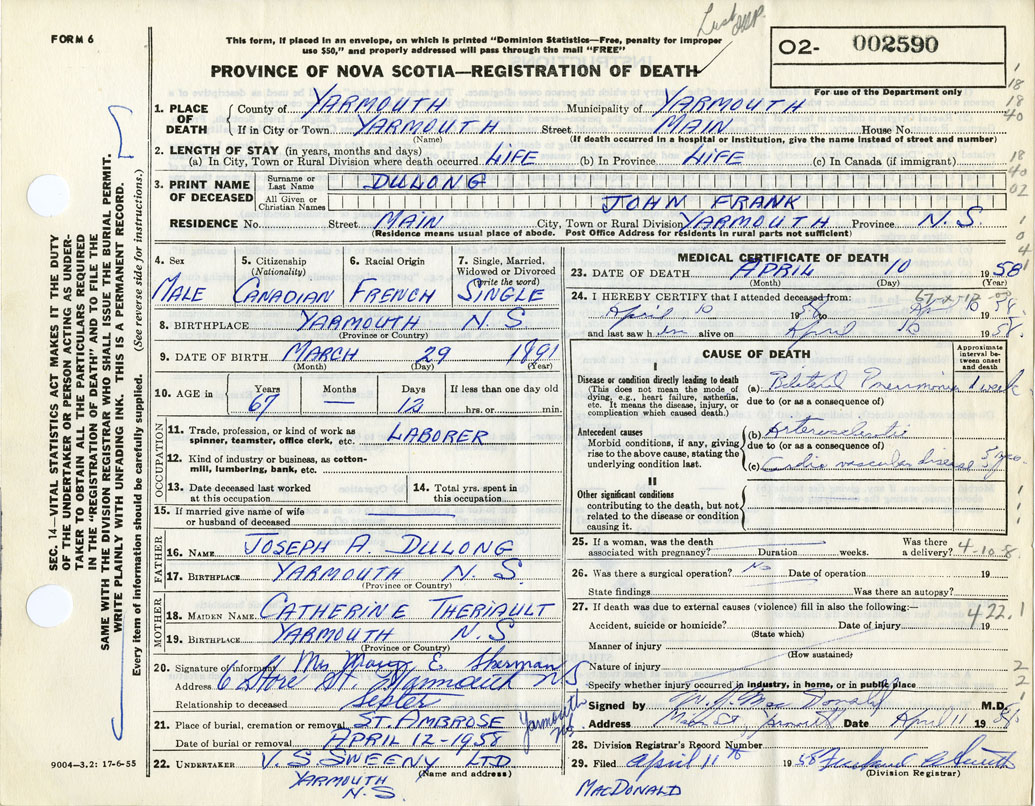 FORM 6
This form, if placed in an envelope, on which is printed "Dominion Statistics—Free, penalty for improper
use $50," and properly addressed will pass through the mail "FREE"
O2- 002590
For use of the Department only
PROVINCE OF NOVA SCOTIA—REGISTRATION OF DEATH
1. PLACE OF DEATH County of YARMOUTH Municipality of YARMOUTH
If in City or Town YARMOUTH Street MAIN House No.
(Name) (If death occurred in a hospital or institution, give the name instead of street and number)
2. LENGTH OF STAY (in years, months and days)
(a) In City, Town or Rural Division where death occurred LIFE (b) In Province LIFE (c) In Canada (if immigrant)
3. PRINT NAME OF DECEASED Surname or Last Name DULONG
All Given or Christian Names JOHN FRANK
RESIDENCE No. Street MAIN City, Town or Rural Division YARMOUTH Province N.S
(Residence means usual place of abode. Post Office Address for residents in rural parts not sufficient)
4. Sex MALE
5. Citizenship (Nationality) CANADIAN
6. Racial Origin FRENCH
7. Single, Married, Widowed or Divorced (write the word) SINGLE
8. BIRTHPLACE YARMOUTH N.S
(Province or Country)
9. DATE OF BIRTH MARCH 29 1891
(Month) (Day) (Year)
10. AGE in Years 67 Months — Days 12 If less than one day old hrs. or min.
OCCUPATION
11. Trade, profession, or kind of work as spinner, teamster, office clerk, etc. LABORER
12. Kind of industry or business, as cotton-mill, lumbering, bank, etc.
13. Date deceased last worked at this occupation
14. Total yrs. spent in this occupation
15. If married give name of wife or husband of deceased
FATHER
16. NAME JOSEPH A. DULONG
17. BIRTHPLACE YARMOUTH N.S.
(Province or Country)
MOTHER
18. MAIDEN NAME CATHERINE THERIAULT
19. BIRTHPLACE YARMOUTH N.S
(Province or Country)
20. Signature of informant Mrs E. Sherman
Address 6 St. Yarmouth NS
Relationship to deceased Sister
21. Place of burial, cremation or removal ST. AMBROSE Yarmouth NS
Date of burial or removal APRIL 12-1958
22. UNDERTAKER V.S. SWEENY LTD
(Name and address)
YARMOUTH
N.S.
9004—3.2: 17-6-55
MEDICAL CERTIFICATE OF DEATH
23. DATE OF DEATH APRIL 10 1958
(Month) (Day) (Year)
24. I HEREBY CERTIFY that I attended deceased from:
April 10 1958 to 10 1958
and last saw him alive on April 10 1958.
CAUSE OF DEATH
Approximate interval between onset and death
I
Disease or condition directly leading to death
(This does not mean the mode of dying, e.g., heart failure, asthenia, etc. It means the disease, injury, or complication which caused death.)
(a) Pneumonia 1 week
due to (or as a consequence of)
Antecedent causes
Morbid conditions, if any, giving rise to the above cause, stating the underlying condition last.
(b)
due to (or as a consequence of)
(c) Cardio vascular disease
II
Other significant conditions
contributing to the death, but not related to the disease or condition causing it.
25. If a woman, was the death associated with pregnancy? Duration weeks. Was there a delivery? 4-10-8
26. Was there a surgical operation? No Date of operation 19
State findings Was there an autopsy?
27. If death was due to external causes (violence) fill in also the following:—
422.1
Accident, suicide or homicide? Date of injury 19
(State which)
Manner of injury
(How sustained)
Nature of injury
Specify whether injury occurred in industry, in home, or in public place
Signed by Mac Donald M.D.
Address Main St, Yarmouth Date April 11 1958
28. Division Registrar's Record Number
29. Filed April 11th 1958
(Division Registrar)
MACDONALD
SEC. 14—VITAL STATISTICS ACT MAKES IT THE DUTY
OF THE UNDERTAKER OR PERSON ACTING AS UNDER-
TAKER TO OBTAIN ALL THE PARTICULARS REQUIRED
IN THE "REGISTRATION OF DEATH" AND TO FILE THE
SAME WITH THE DIVISION REGISTRAR WHO SHALL ISSUE THE BURIAL PERMIT.
WRITE PLAINLY WITH UNFADING INK. THIS IS A PERMANENT RECORD.
Every item of information should be carefully supplied. (See reverse side for instructions.)